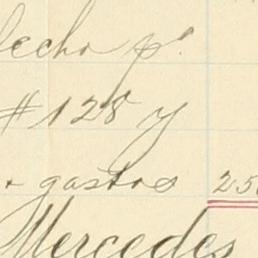 fecha pa.
# 128 y
gastos 25
Mercedes